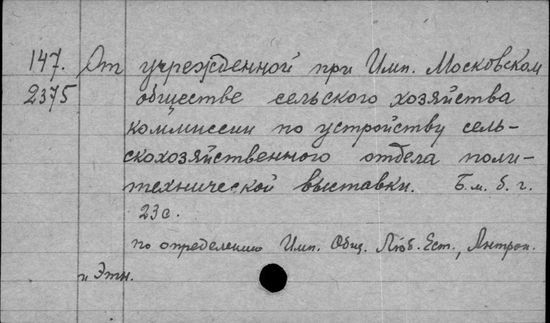 147. От учрежденной при Имп. Московском
2375 обществе сельского хозяйства
коммиссии по устройству сель-
скохозяйственного отдела поли-
технической выставки. Б. м. б. г.
23с.
по определению Имп. Общ. Люб. Ест., Антроп.
и Этн.